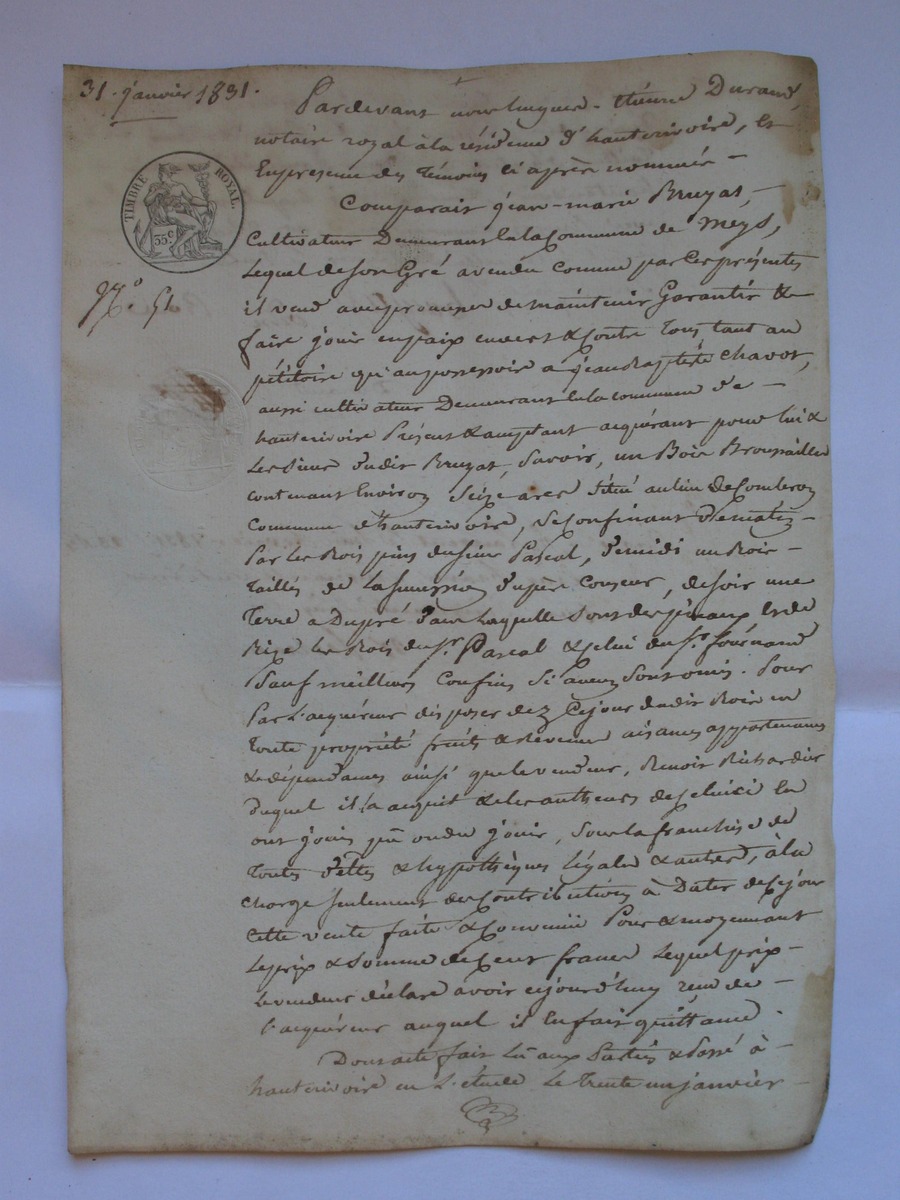 31. janvier 1831.
Pardevant nous hugues-étienne Durand,
notaire royal à la résidence d'hauterivoire, et
En présence des témoins ci après nommés -
TIMBRE ROYAL.
35c
Comparait jean-marie Bruyas, -
Cultivateur Demeurant en la Commune de Meys,
Lequel de son Gré a vendu comme par Ces présentes
N.° 51
il vend avec promesse de maintenir Garantir &
faire jouir en paix envers & Contre Tous tant au
pétitoire qu'au possessoire a jean Baptiste Chavot,
aussi cultivateur Demeurant en la commune de -
hauterivoire Présent & acceptant acquérant pour lui &
Les siens dudit Bruyas, Savoir, un Bois Broussailles
contenant Environ Seize ares Situé au lieu de
commune d'hauterivoire, Se Confinant de matin -
Par les Bois pins du sieur Pascal, de midi un Bois -
Taillis de La succession du père Couzeur, de soir une
Terre a Dupré dans Laquelle sont des & de
Bize les Bois du Sr. Pascal & celui du Sr. fournand
Sauf meilleurs Confins Si aucuns sont omis. Pour
Par L'acquéreur disposer dez Ce jour dudit Bois en
Toute propriété fruits & Revenus aisances appartenances
& dépendances ainsi que le vendeur, Benoit Richard
duquel il l'a acquit & les autheurs de Celuici En
ont joui pû ou du jouir, Sous la franchise de
Toutes dettes & hypothèques Légales & autres, à la
Charge seulement des Contributions à Dater de Ce jour
Cette vente faite & Convenüe Pour & moyennant
Le prix & Somme de Cent francs Lequel prix -
Le vendeur déclare avoir cejourd'huy reçu de -
L'acquéreur auquel il En fait quittance.
Dont acte fait Lû aux Parties & Passé à -
hauterivoire en L'étude Le Trente un janvier -